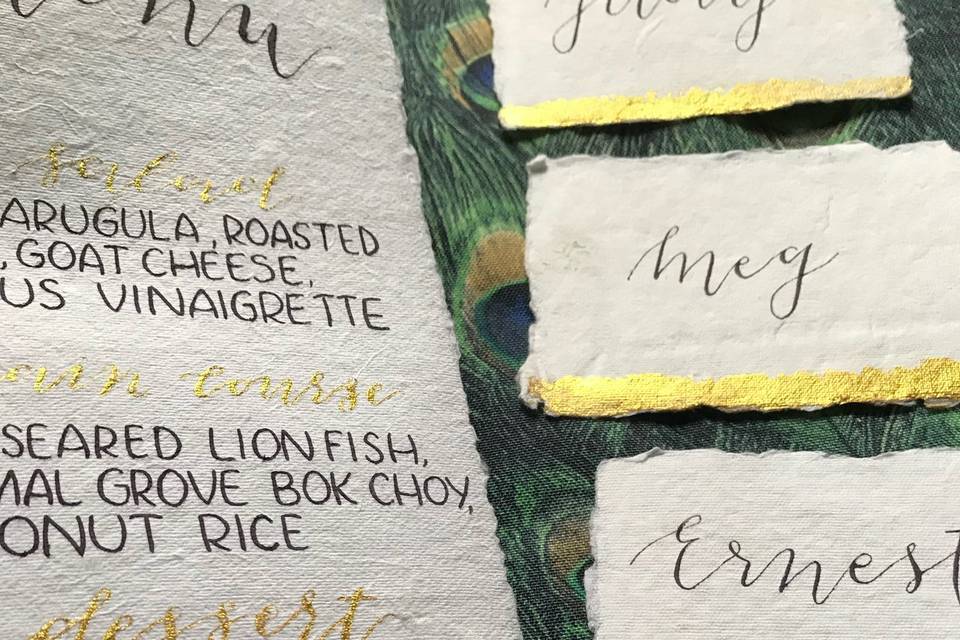 enu
ARUGULA, ROASTED
, GOAT CHEESE,
US VINAIGRETTE
ain course
SEARED LIONFISH,
MAL GROVE BOK CHOY,
ONUT RICE
dessert
meg
Ernest